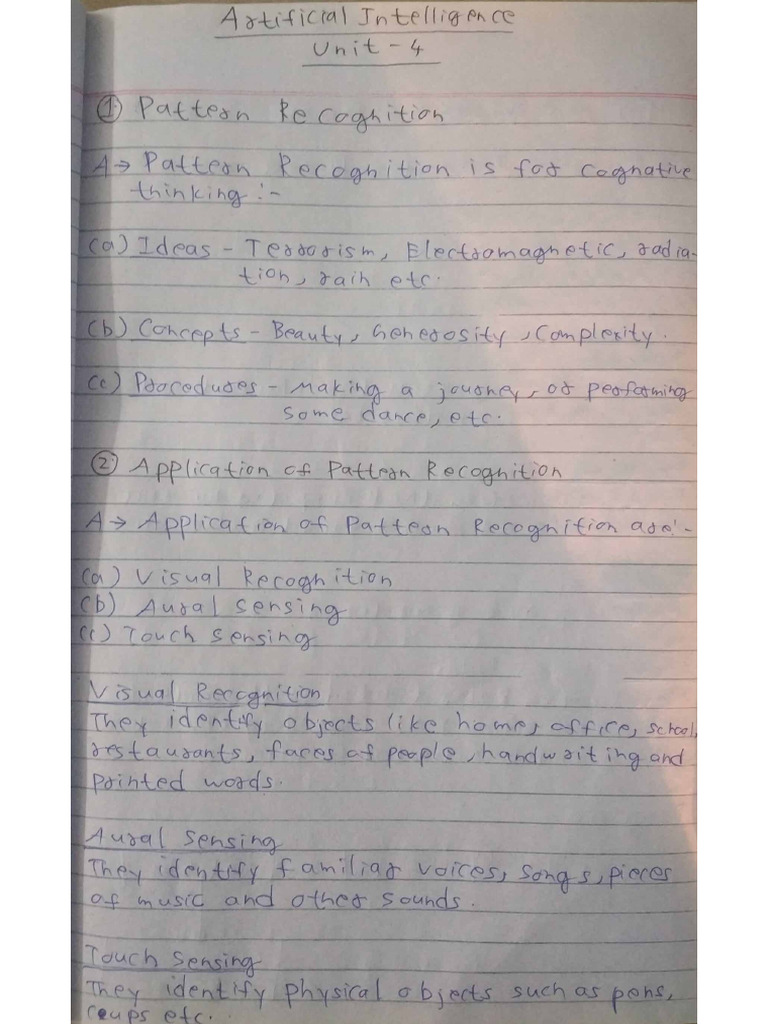 Artificial Intelligence
Unit - 4
① Pattern Recognition
A → Pattern Recognition is for cognative
thinking :-
(a) Ideas - Terrorism, Electromagnetic, radia-
tion, rain etc.
(b) Concepts - Beauty, Generosity, Complexity.
(c) Procedures - Making a journey, or performing
some dance, etc.
② Application of Pattern Recognition
A → Application of Pattern Recognition are:-
(a) Visual Recognition
(b) Aural sensing
(c) Touch sensing
Visual Recognition
They identify objects like home, office, school,
restaurants, faces of people, handwriting and
printed words.
Aural sensing
They identify familiar voices, songs, pieces
of music and other sounds.
Touch sensing
They identify physical objects such as pens,
cups etc.